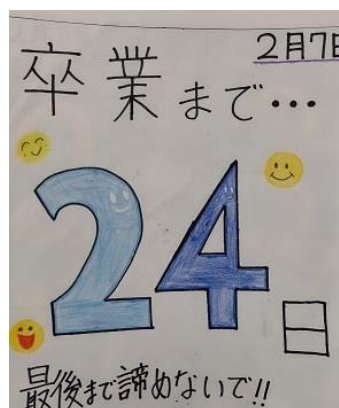 2月7日
卒業まで…
24日
最後まで諦めないで!!